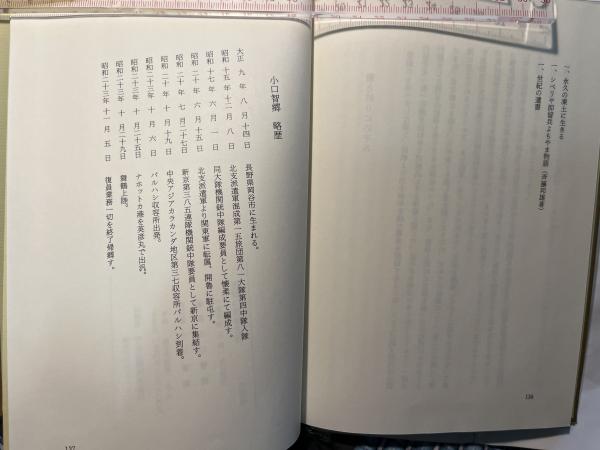 一、永久の凍土に生きる
一、シベリヤ抑留兵よもやま物語（斉藤邦雄著）
一、世紀の遺書
136
小口智郷　略歴
大正　九　年　八　月十四日　長野県岡谷市に生まれる。
昭和　十五年十二月　八　日　北支派遣軍混成第一五旅団第八一大隊第四中隊入隊
昭和　十七年　六月　一　日　同大隊機関銃中隊編成要員として懐柔にて編成す。
昭和　二十　年　六　月十五日　北支派遣軍より関東軍に転属、開魯に駐屯す。
昭和　二十　年　七　月二十七日　新京第三八五連隊機関銃中隊要員として新京に集結す。
昭和　二十　年　十　月十九日　中央アジアカラカンダ地区第三七収容所バルハシ到着。
昭和二十三年　十　月　六　日　バルハシ収容所出発。
昭和二十三年　十　月二十五日　ナホットカ港を英彦丸で出汎。
昭和二十三年　十　月二十九日　舞鶴上陸。
昭和二十三年十一月　五　日　復員業務一切を終了帰郷す。
137